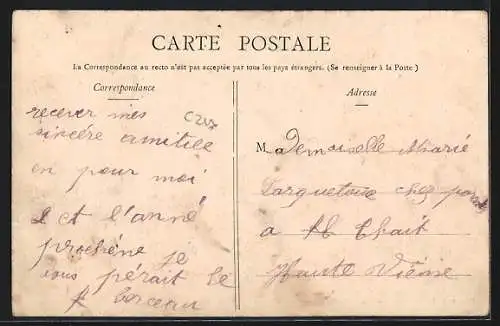 CARTE POSTALE
La Correspondance au recto n'est pas acceptée par tous les pays étrangers. (Se renseigner à la Poste)
Correspondance
recever mes
sincére amitiée
en pour moi
et l'anné
prochéne je
vous pérait le
berceau
Adresse
Mademoiselle Marie
chez
a
Haute Vienne